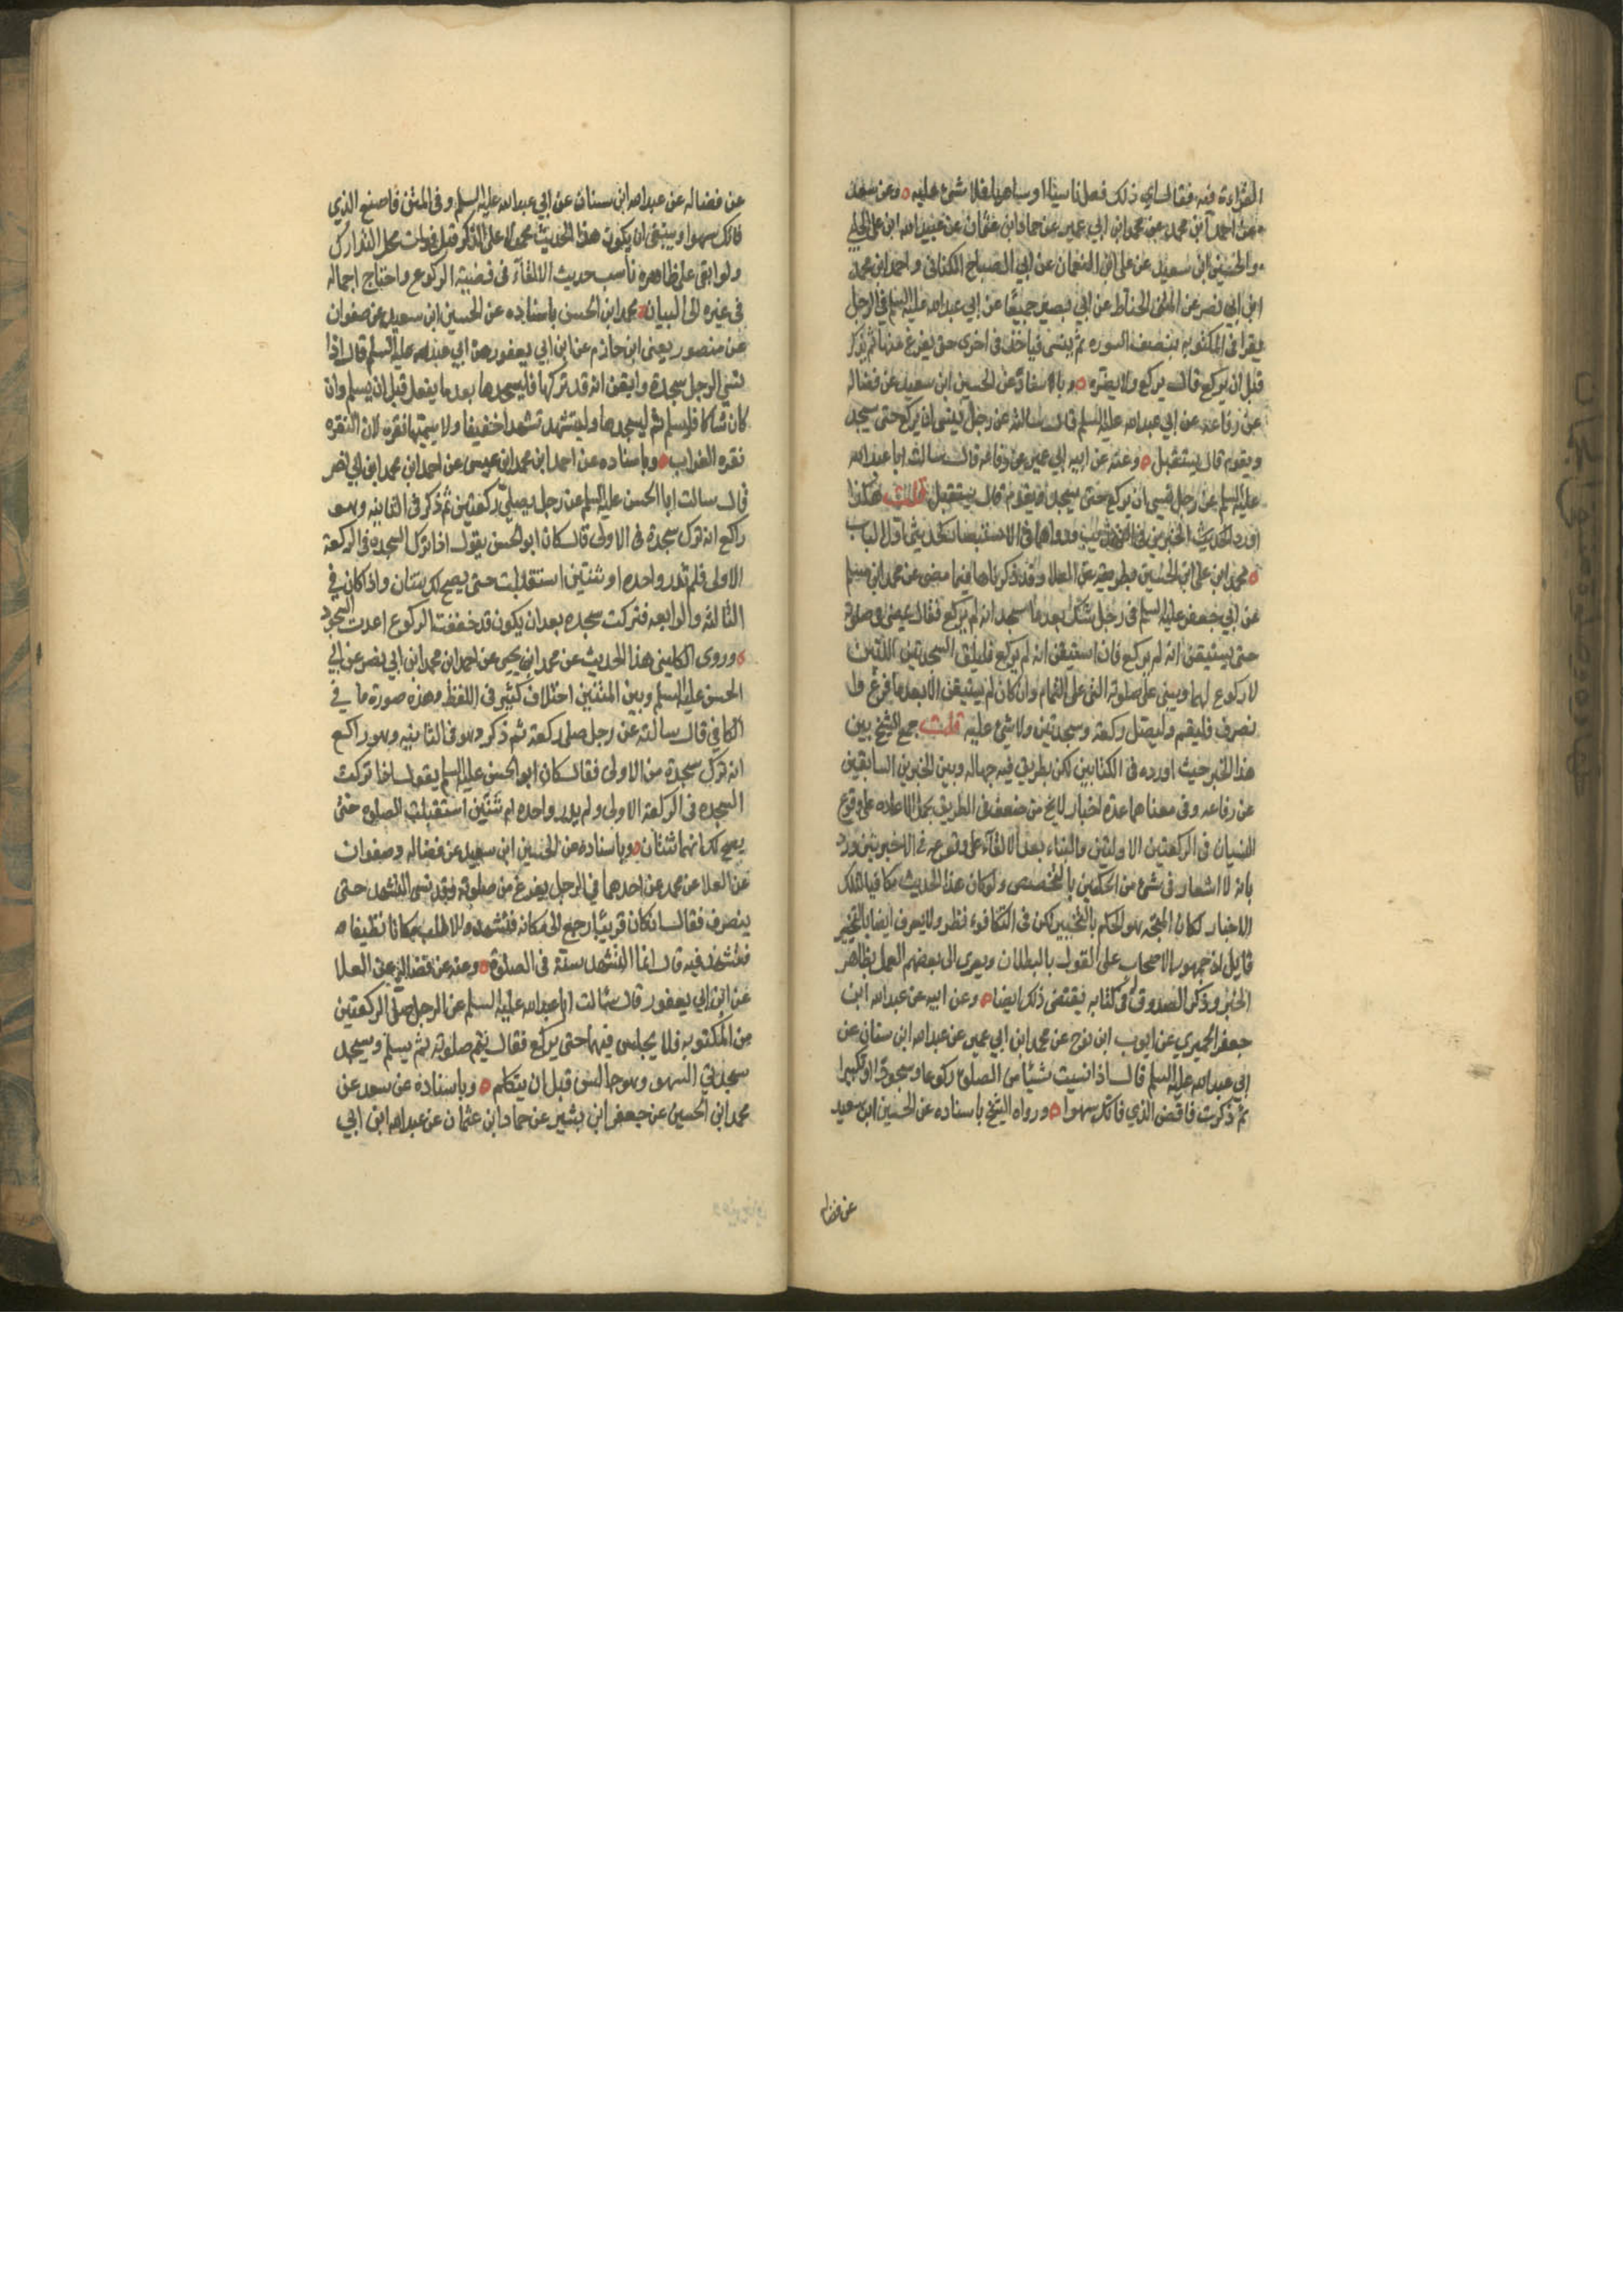 القراءة فيه فقال اي ذلك فعل ناسيا او ساهيا فلا شئ عليه ه وعن سعد
عن احمد ابن محمد عن محمد ابن ابي عمير عن حماد ابن عثمان عن عبيد الله ابن علي الحلبي
والحسين ابن سعيد عن علي ابن النعمان عن ابي الصباح الكناني و احمد ابن محمد
ابن ابي نصر عن المثنى الحناط عن ابي بصير جميعا عن ابي عبد الله عليه السلم في الرجل
يقرا في المكتوبه بنصف السوره ثم ينسى فياخذ في اخرى حتى يفرغ منها ثم يذكر
قبل ان يركع قال يركع ولا يضره ه و بالاسناد عن الحسين ابن سعيد عن فضاله
عن رفاعه عن ابي عبد الله عليه السلم قال سالته عن رجل ينسى ان يركع حتى يسجد
ويقوم قال يستقبل ه وعنه عن ابيه ابي عمير عن رفاعه قال سالت ابا عبد الله
عليه السلم عن رجل نسي ان يركع حتى يسجد ويقوم قال يستقبل قلت هكذا
اورد الحديث الخبرين في التهذيب ورواهما في الاستبصار كحديث اول الباب
ه محمد ابن علي ابن الحسين بطريقه عن العلا وقد ذكرناها فيما مضى عن محمد ابن مسلم
عن ابي جعفر عليه السلم في رجل شك بعد ما سجد انه لم يركع فقال يمضي في صلوته
حتى يستيقن انه لم يركع فان استيقن انه لم يركع فليلق السجدتين اللتين
لا ركوع لهما ويبني على صلوته التي على التمام وان كان لم يستيقن الا بعد ما فرغ وا
نصرف فليقم وليصل ركعة وسجدتين ولا شئ عليه قلت جمع الشيخ بين
هذا الخبر حيث اورده في الكتابين لكن بطريق فيه جهاله وبين الخبرين السابقين
عن رفاعه وفي معناهما عدة اخبار لا يخ من ضعف في الطريق بحمل الاعاده على وقوع
النسيان في الركعتين الاولتين والبناء بعد الالقآء على وقوعه في الاخيرتين ورد
بانه لا اشعار في شئ من الحكمين بالتخصيص ولو كان هذا الحديث مكافيا لتلك
الاخبار لكان المتجه هو الحكم بالتخيير لكن في التكافوء نظر ولا يعرف ايضا بالتخيير
قايل اذ جمهور الاصحاب على القول بالبطلان ويعزى الى بعضهم العمل بظاهر
الخبر وذكر الصدوق له في كتابه يقتضى ذلك ايضا ه وعن ابيه عن عبد الله ابن
جعفر الحميري عن ايوب ابن نوح عن محمد ابن ابي عمير عن عبد الله ابن سنان عن
ابي عبد الله عليه السلم قال اذا نسيت شيئا من الصلوة ركوعا وسجودا او تكبيرا
ثم ذكرت فاقض الذي فاتك سهوا ه ورواه الشيخ باسناده عن الحسين ابن سعيد
عن فضاله
عن فضاله عن عبد الله ابن سنان عن ابي عبد الله عليه السلم وفي المتن فاصنع الذي
فاتك سهوا وينبغي ان يكون هذا الحديث محمولا على الذكر قبل فوات محل التدارك
ولو ابقى على ظاهره ناسب حديث الالقآء في قضية الركوع واحتاج اجماله
في غيره الى البيان ه محمد ابن الحسن باسناده عن الحسين ابن سعيد عن صفوان
عن منصور يعنى ابن حازم عن ابن ابي يعفور عن ابي عبد الله عليه السلم قال اذا
نسي الرجل سجدة وايقن انه قد تركها فليسجدها بعد ما يقعد قبل ان يسلم وان
كان شاكا فليسلم ثم ليسجدها وليتشهد تشهدا خفيفا ولا يسميها نقره لان النقره
نقره الغراب ه وباسناده عن احمد ابن محمد ابن عيسى عن احمد ابن محمد ابن ابي نصر
قال سالت ابا الحسن عليه السلم عن رجل يصلي ركعتين ثم ذكر في الثانيه وهو
راكع انه ترك سجدة في الاولى قال كان ابو الحسن يقول اذا ترك السجده في الركعة
الاولى فلم تدر واحده او ثنتين استقبلت حتى يصح لك ثنتان واذا كان في
الثالثه والرابعه فتركت سجده بعد ان يكون قد حفظت الركوع اعدت السجود
ه وروى الكليني هذا الحديث عن محمد ابن يحيى عن احمد ابن محمد ابن ابي نصر عن ابي
الحسن عليه السلم وبين المتنين اختلاف كثير في اللفظ وهذه صورة ما في
الكافي قال سالته عن رجل صلى ركعة ثم ذكر وهو في الثانيه وهو راكع
انه ترك سجدة من الاولى فقال كان ابو الحسن عليه السلم يقول اذا تركت
السجده في الركعة الاولى ولم يدر واحده ام ثنتين استقبلت الصلوة حتى
يصح لك انهما ثنتان ه وباسناده عن الحسين ابن سعيد عن فضاله وصفوان
عن العلا عن محمد عن احدهما في الرجل يفرغ من صلوته وقد نسى التشهد حتى
ينصرف فقال ان كان قريبا رجع الى مكانه فتشهد والا طلب مكانا نظيفا
فتشهد فيه قال انما التشهد سنة في الصلوة ه وعنه عن فضاله عن العلا
عن ابن ابي يعفور قال سالت ابا عبد الله عليه السلم عن الرجل صلى الركعتين
من المكتوبه فلا يجلس فيهما حتى يركع فقال يتم صلوته ثم يسلم ويسجد
سجدتي السهو وهو جالس قبل ان يتكلم ه وباسناده عن سعد عن
محمد ابن الحسين عن جعفر ابن بشير عن حماد ابن عثمان عن عبد الله ابن ابي